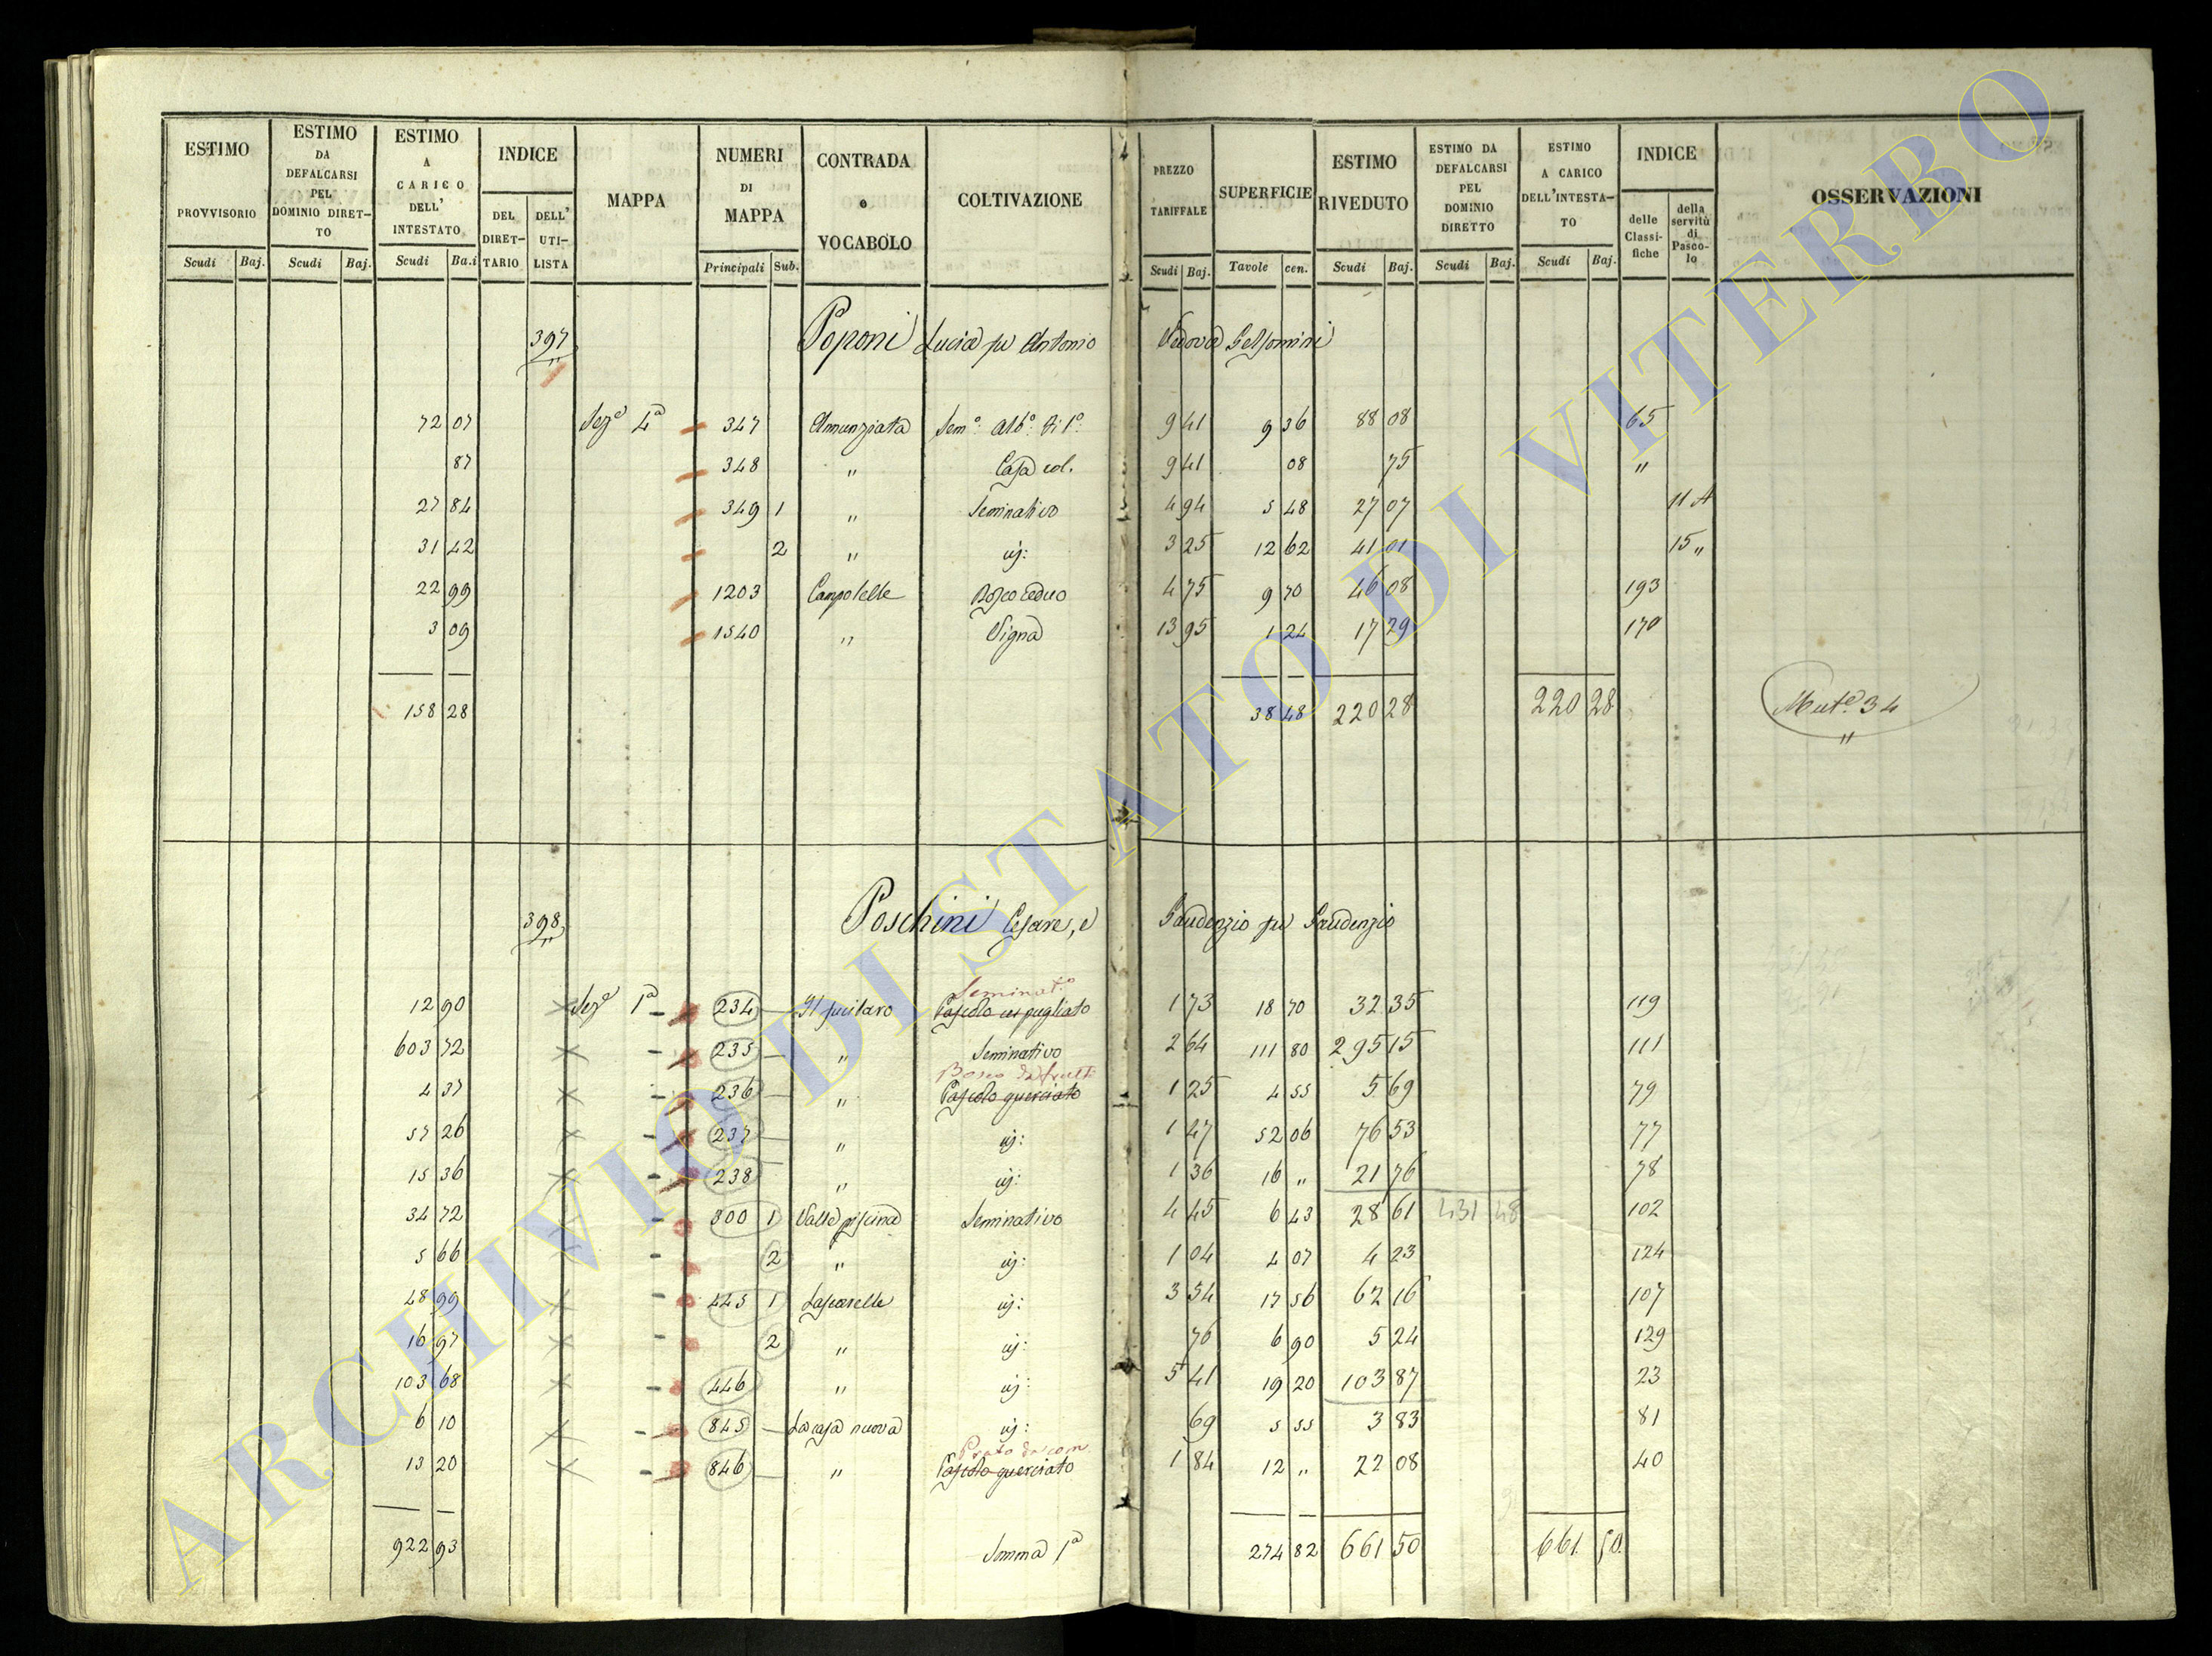 ESTIMO PROVVISORIO | ESTIMO DA DEFALCARSI PEL DOMINIO DIRETTO | ESTIMO A CARICO DELL' INTESTATO | INDICE | MAPPA | NUMERI DI MAPPA | CONTRADA o VOCABOLO | COLTIVAZIONE | PREZZO TARIFFALE | SUPERFICIE | ESTIMO RIVEDUTO | ESTIMO DA DEFALCARSI PEL DOMINIO DIRETTO | ESTIMO A CARICO DELL'INTESTATO | INDICE | OSSERVAZIONI
DEL DIRETTARIO | DELL' UTILISTA | delle Classifiche | della servitù di Pascolo
Scudi | Baj. | Scudi | Baj. | Scudi | Ba.i | Principali | Sub. | Scudi | Baj. | Tavole | cen. | Scudi | Baj. | Scudi | Baj. | Scudi | Baj.
397 Poponi Lucia fu Antonio Vedova Gelsomini
72 07 Seze 4a 347 Annunziata Semo: Albo: di 1o: 9 41 9 36 88 08 65
87 348 " Casa col. 9 41 08 75 "
27 84 349 1 " Seminativo 4 94 5 48 27 07 11 A
31 42 2 " io: 3 25 12 62 41 01 15 "
22 99 1203 Campolelle Bosco ceduo 4 75 9 70 46 08 193
3 09 1540 " Vigna 13 95 1 24 17 29 170
158 28 38 48 220 28 220 28 Mute. 34
"
398 Poschini Cesare, e Gaudenzio fu Gaudenzio
Seminato
12 90 Seze 1a 234 1 73 18 70 32 35 119
603 72 235 " Seminativo 2 64 111 80 295 15 111
Bosco da frutt
4 37 236 " Pascolo querciato 1 25 4 55 5 69 79
57 26 237 " io: 1 47 52 06 76 53 77
15 36 238 " io: 1 36 16 " 21 76 78
34 72 300 1 Valle piscina Seminativo 4 45 6 43 28 61 431 48 102
5 66 2 " io: 1 04 4 07 4 23 124
48 99 445 1 Lascarelle io: 3 54 17 56 62 16 107
16 97 2 " io: 76 6 90 5 24 129
103 68 446 " io: 5 41 19 20 103 87 23
6 10 845 La casa nuova io: 69 5 55 3 83 81
Prato da com
13 20 846 " Pascolo querciato 1 84 12 " 22 08 40
922 93 Somma 1a 274 82 661 50 661 50
ARCHIVIO DI STATO DI VITERBO